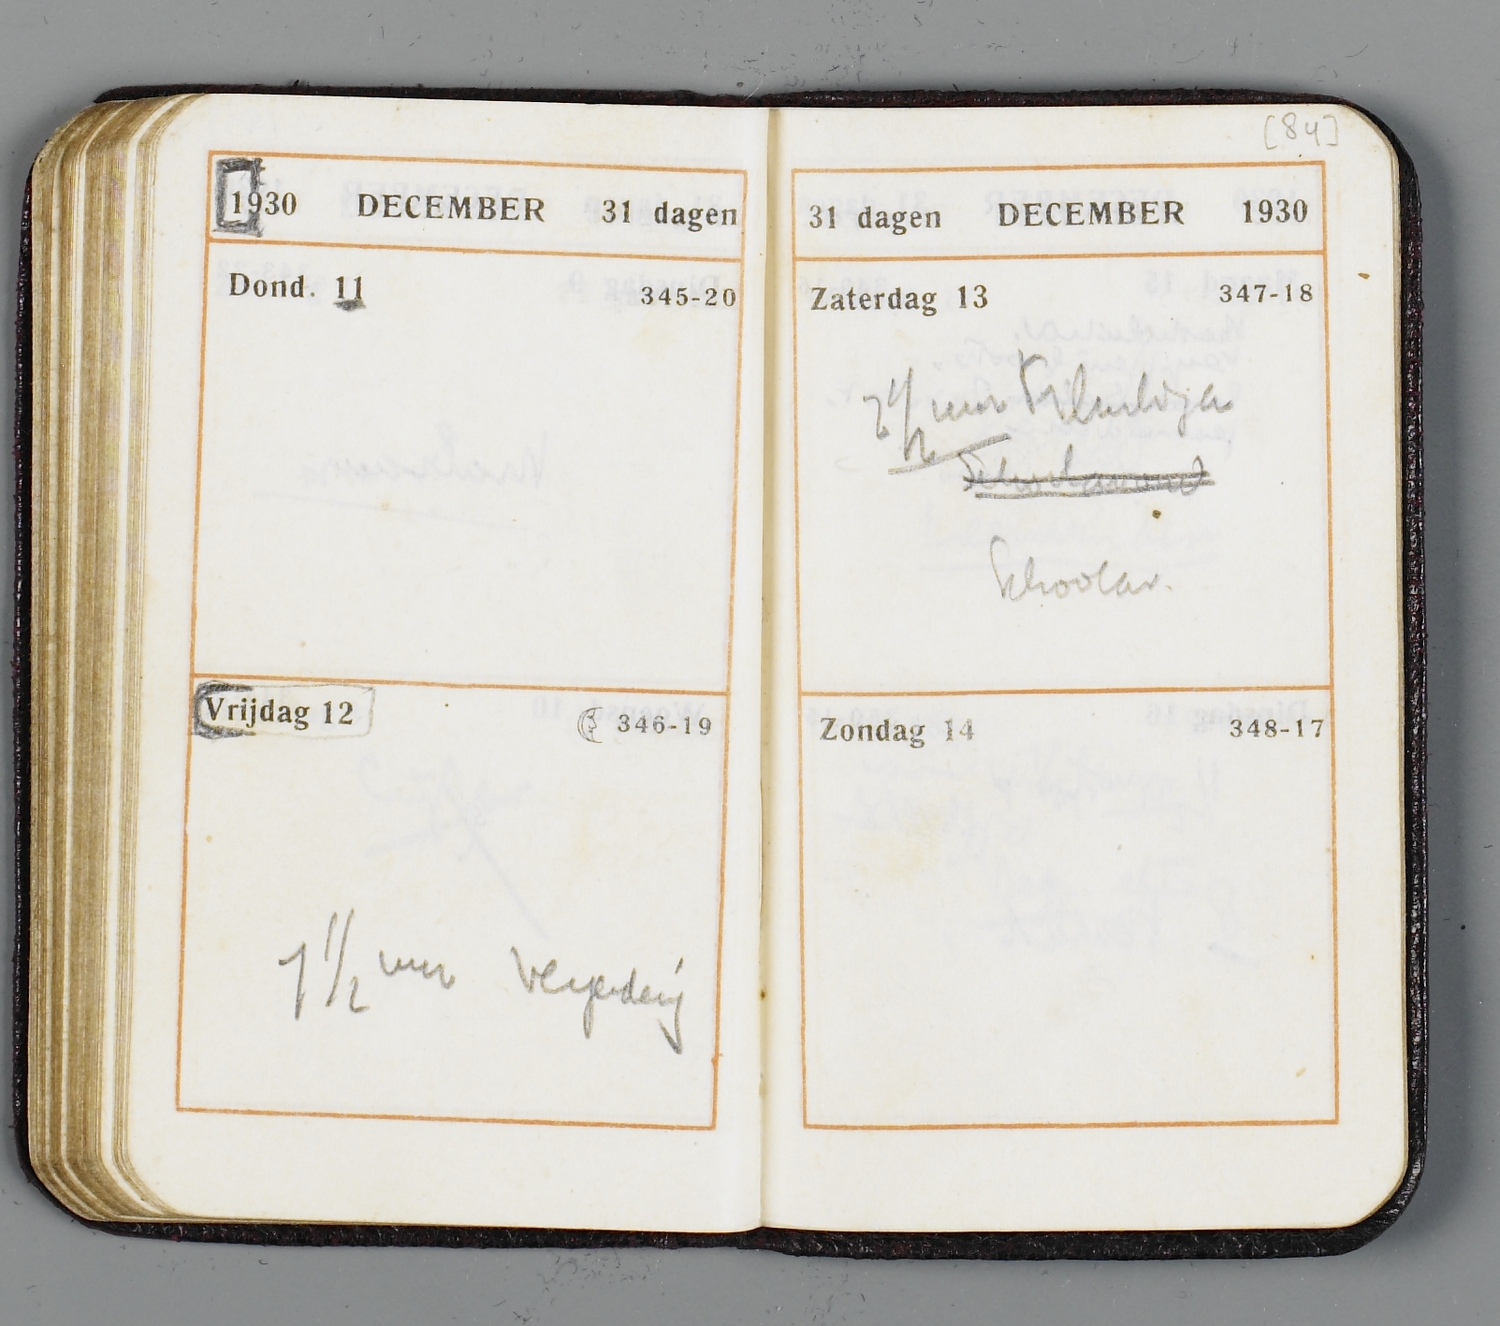 [84]
1930 DECEMBER 31 dagen
Dond. 11 345-20
Vrijdag 12 346-19
7 1/2 uur Vergadering
31 dagen DECEMBER 1930
Zaterdag 13 347-18
7 1/2 uur
Schoolavond
Schoolav.
Zondag 14 348-17